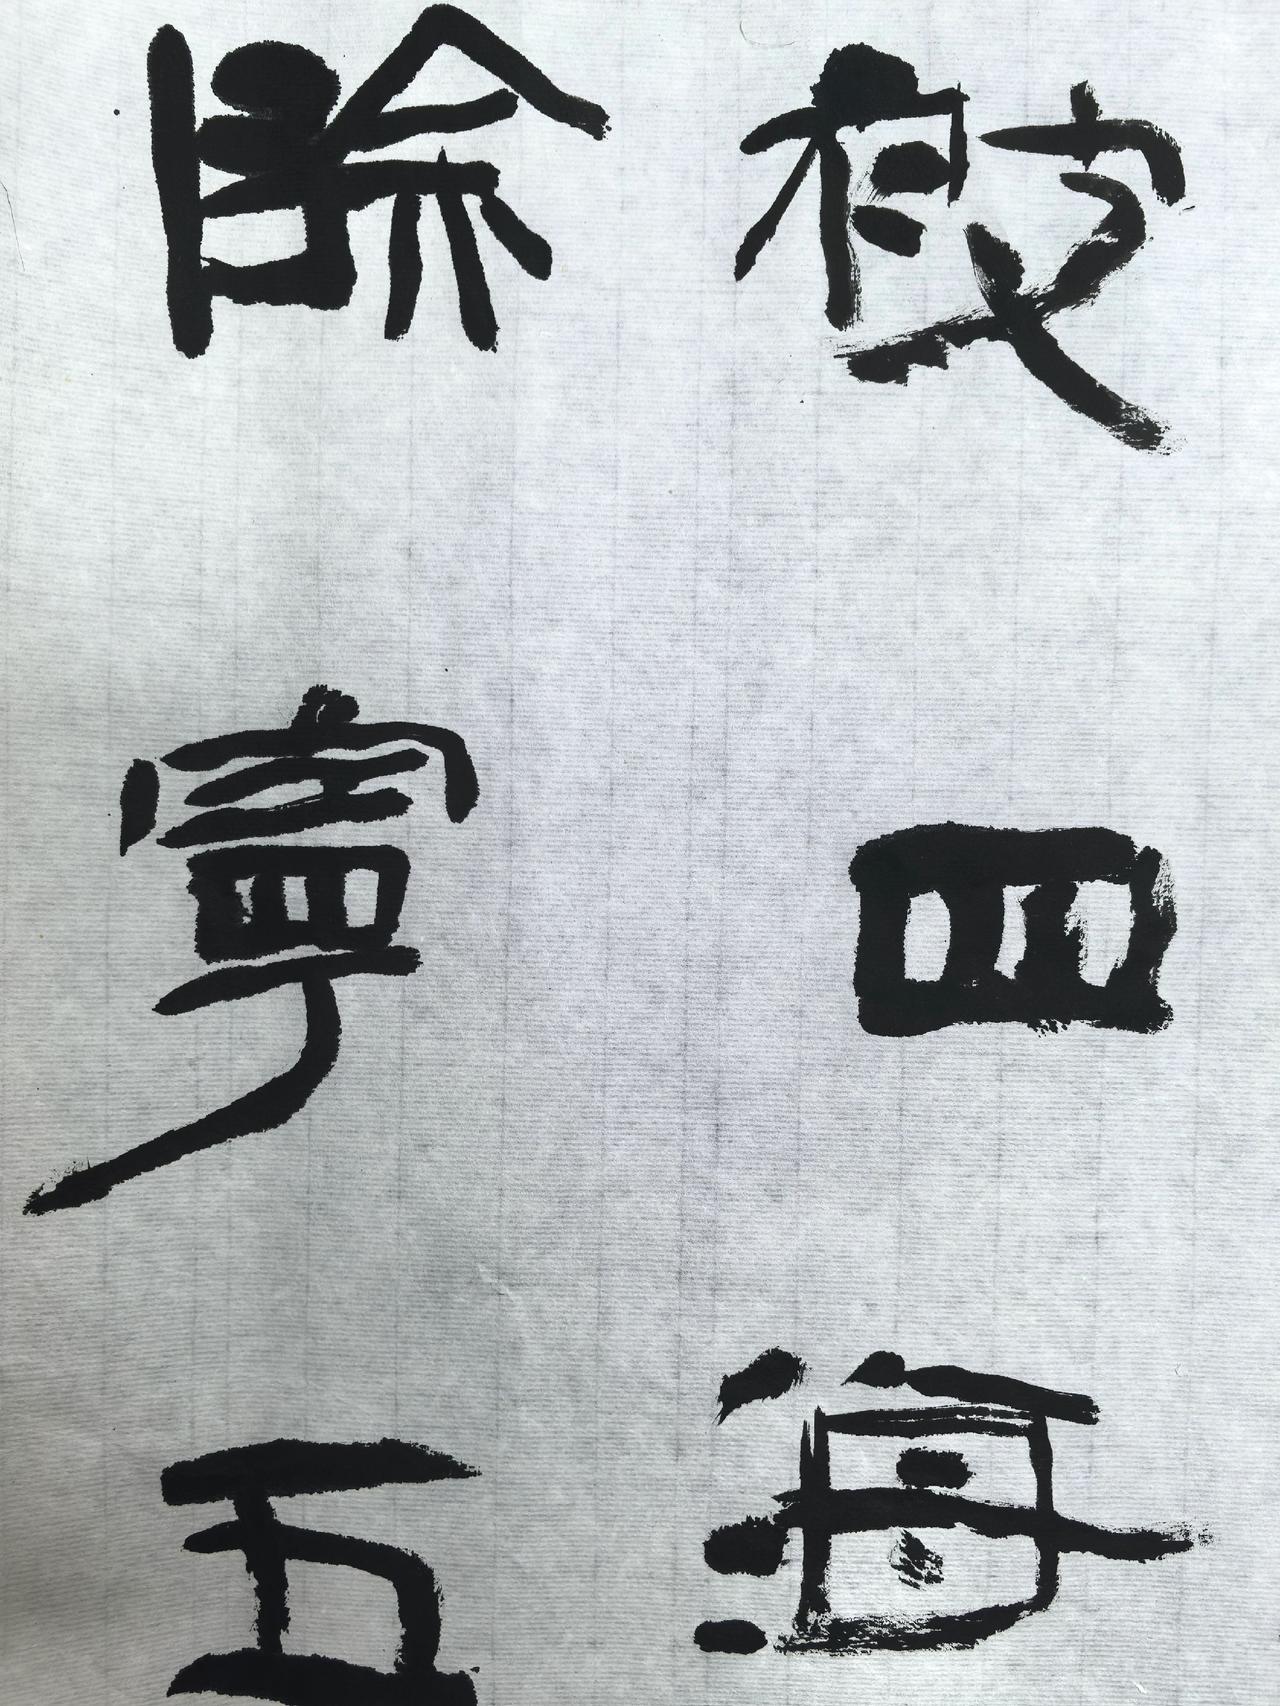 四海
除寧五